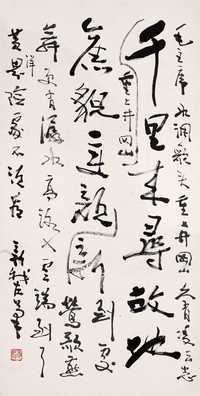 毛主席水调歌头重上井冈山久有凌云志
重上井冈山
千里来寻故地
舊貌变颜新到处
莺歌燕
舞更有潺水高路入云端到了
黄洋界险处不须看
新我左笔